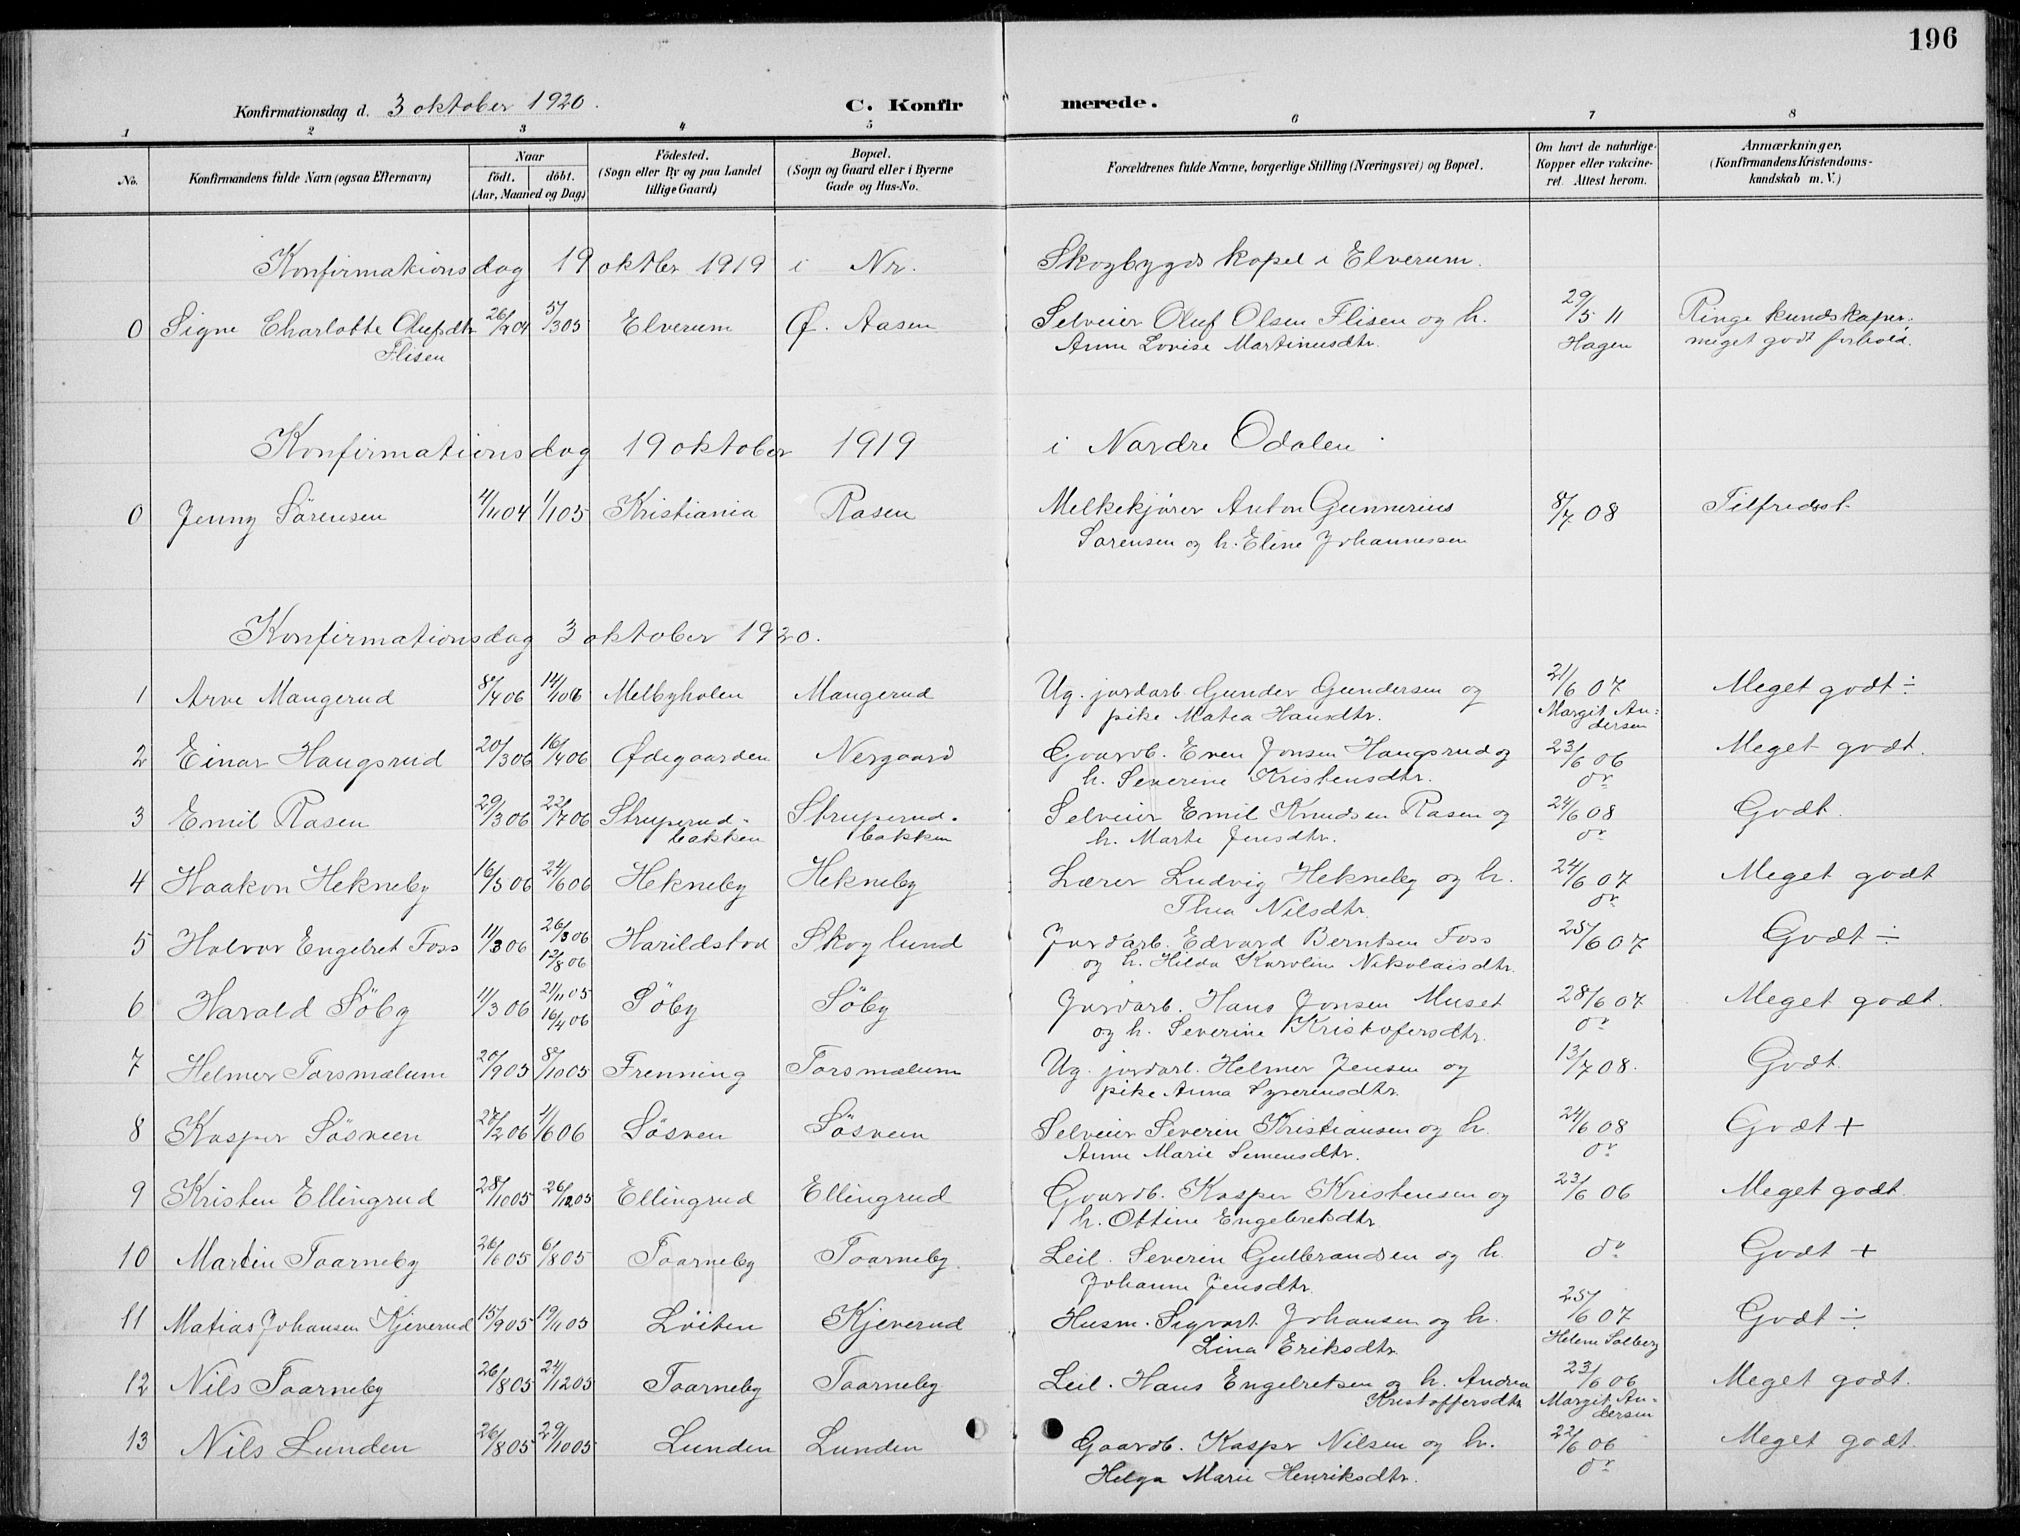 196
Konfirmationsdag d. 3 oktober 1920. C. Konfirmerede.
1 2 3 4 5 6 7 8
No. Konfirmandens fulde Navn (ogsaa Efternavn) Naar födt. döbt. (Aar, Maaned og Dag) Födested. (Sogn eller By og paa Landet tillige Gaard) Bopæl. (Sogn og Gaard eller i Byerne Gade og Hus-No. Forældrenes fulde Navne, borgerlige Stilling (Næringsvei) og Bopæl. Om havt de naturlige Kopper eller vakcineret. Attest herom. Anmærkninger, (Konfirmandens Kristendomskundskab m. V.)
Konfirmationsdag 19 oktbr 1919 i Nr. Skogbygds kapel i Elverum.
0 Signe Charlotte Olufsdtr 26/9 04 5/3 05 Elverum Ø. Aasen Selveier Oluf Olsen Flisen og h. 29/5 11 Ringe kundskaper,
Flisen Anne Lovise Martinusdtr. Hagen meget godt forhold.
Konfirmationsdag 19 oktober 1919 i Nordre Odalen
0 Jenny Sörensen 4/11 04 1/1 05 Kristiania Rasen Melkekjører Anton Gunnerius 8/7 08 Tilfredsst.
Sørensen og h. Eline Johannessen
Konfirmationsdag 3 oktober 1920.
1 Arve Mangerud 8/4 06 14/10 6 Melbyholen Mangerud Ug. jordarb Gunder Gundersen og 21/6 07 Meget godt ÷
pike Matea Hansdtr. Margit Andersen
2 Einar Haugsrud 20/3 06 16/4 06 Ødegaarden Nergaard Gaardb. Even Jonsen Haugsrud og 23/6 06 Meget godt.
h. Severine Kristensdtr. do
3 Emil Rasen 29/3 06 22/7 06 Struperud- Struperud- Selveier Emil Knudsen Rasen og 24/6 08 Godt.
bakken bakken h. Marte Jensdtr. do
4 Haakon Hekneby 16/5 06 24/6 06 Hekneby Hekneby Lærer Ludvig Hekneby og h. 24/6 07 Meget godt
Thea Nilsdtr. do
5 Halvor Engebret Foss 11/3 06 26/3 06 Harildstad Skoglund Jordarb. Edvard Berntsen Foss 25/6 07 Godt ÷
12/8 06 og h. Hilda Karoline Nikolaisdtr.
6 Harald Söby 11/3 06 21/11 05 Söby Söby Jordarb. Hans Jonsen Muset 28/6 07 Meget godt.
16/4 06 og h. Severine Kristofersdtr. do
7 Helmer Torsmælum 20/9 05 8/10 05 Frenning Torsmælum Ug. jordarb. Helmer Jensen og 13/7 08. Godt.
pike Anna Syverinsdtr.
8 Kasper Søsveen 27/2 06 1/6 06 Søsven Søsveen Selveier Severin Kristiansen og h. 24/6 08 Godt +
Anne Marie Simensdtr. do
9 Kristen Ellingrud 28/10 05 26/12 05 Ellingrud Ellingrud Gaardb. Kasper Kristensen og 23/6 06 Meget godt.
h. Ottine Engebretsdtr.
10 Martin Taarneby 26/6 05 6/8 05 Taarneby Taarneby. Leil. Severin Gulbrandsen og h. do Godt +
Johanne Jensdtr.
11 Matias Johansen Kjeverud 15/9 05 19/11 05 Löiten Kjeverud Husm. Sigvart Johansen og h. 25/6 07 Godt ÷
Lina Eriksdtr. Helene Solberg
12 Nils Taarneby 26/8 05 24/12 05 Taarneby Taarneby Leil. Hans Engebretsen og h. Andrea 23/6 06 Meget godt.
Kristoffersdtr Margit Andersen
13 Nils Lunden 26/8 05 29/10 05 Lunden Lunden Gaardb. Kasper Nilsen og h. 22/6 06 Meget godt.
Helga Marie Henriksdtr. do